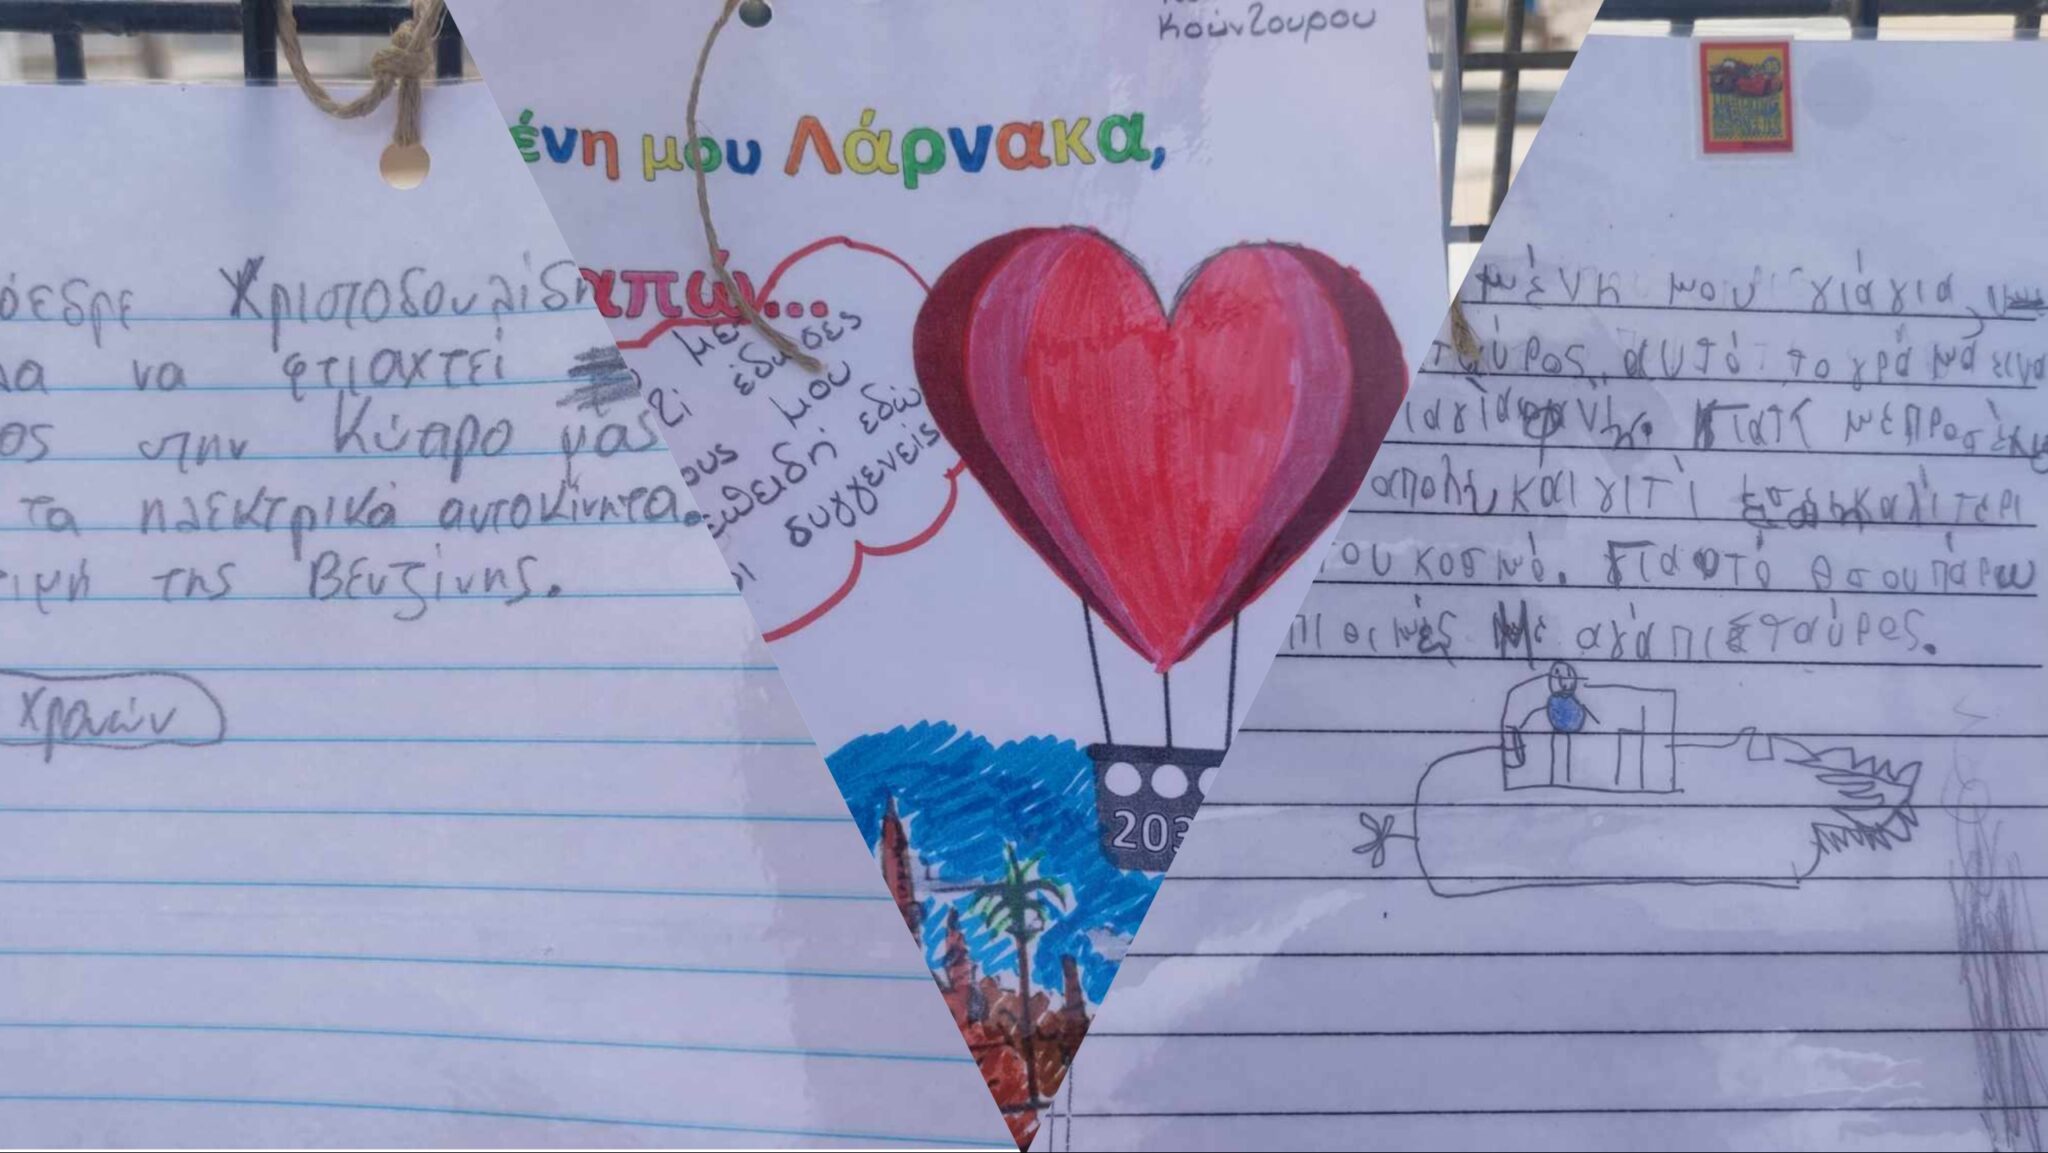 όεδρε Χριστοδουλίδη
να φτιαχτεί
ος στην Κύπρο μας
τα ηλεκτρικά αυτοκίνητα.
τιμή της Βενζίνης.
χρονών
Κούντουρου
ένη μου Λάρνακα,
απώ...
με
έδωσες
μου
ους
επειδή εδώ
συγγενείς
203
μένη μου γιάγια
ταύρος. αυτό το γρά μα είνα
μέπροσέχη
απολη και γιτί καλίτερι
του κοσμό. Γιαφτό θσου πάρω
Με αγάπι Σταύρος.